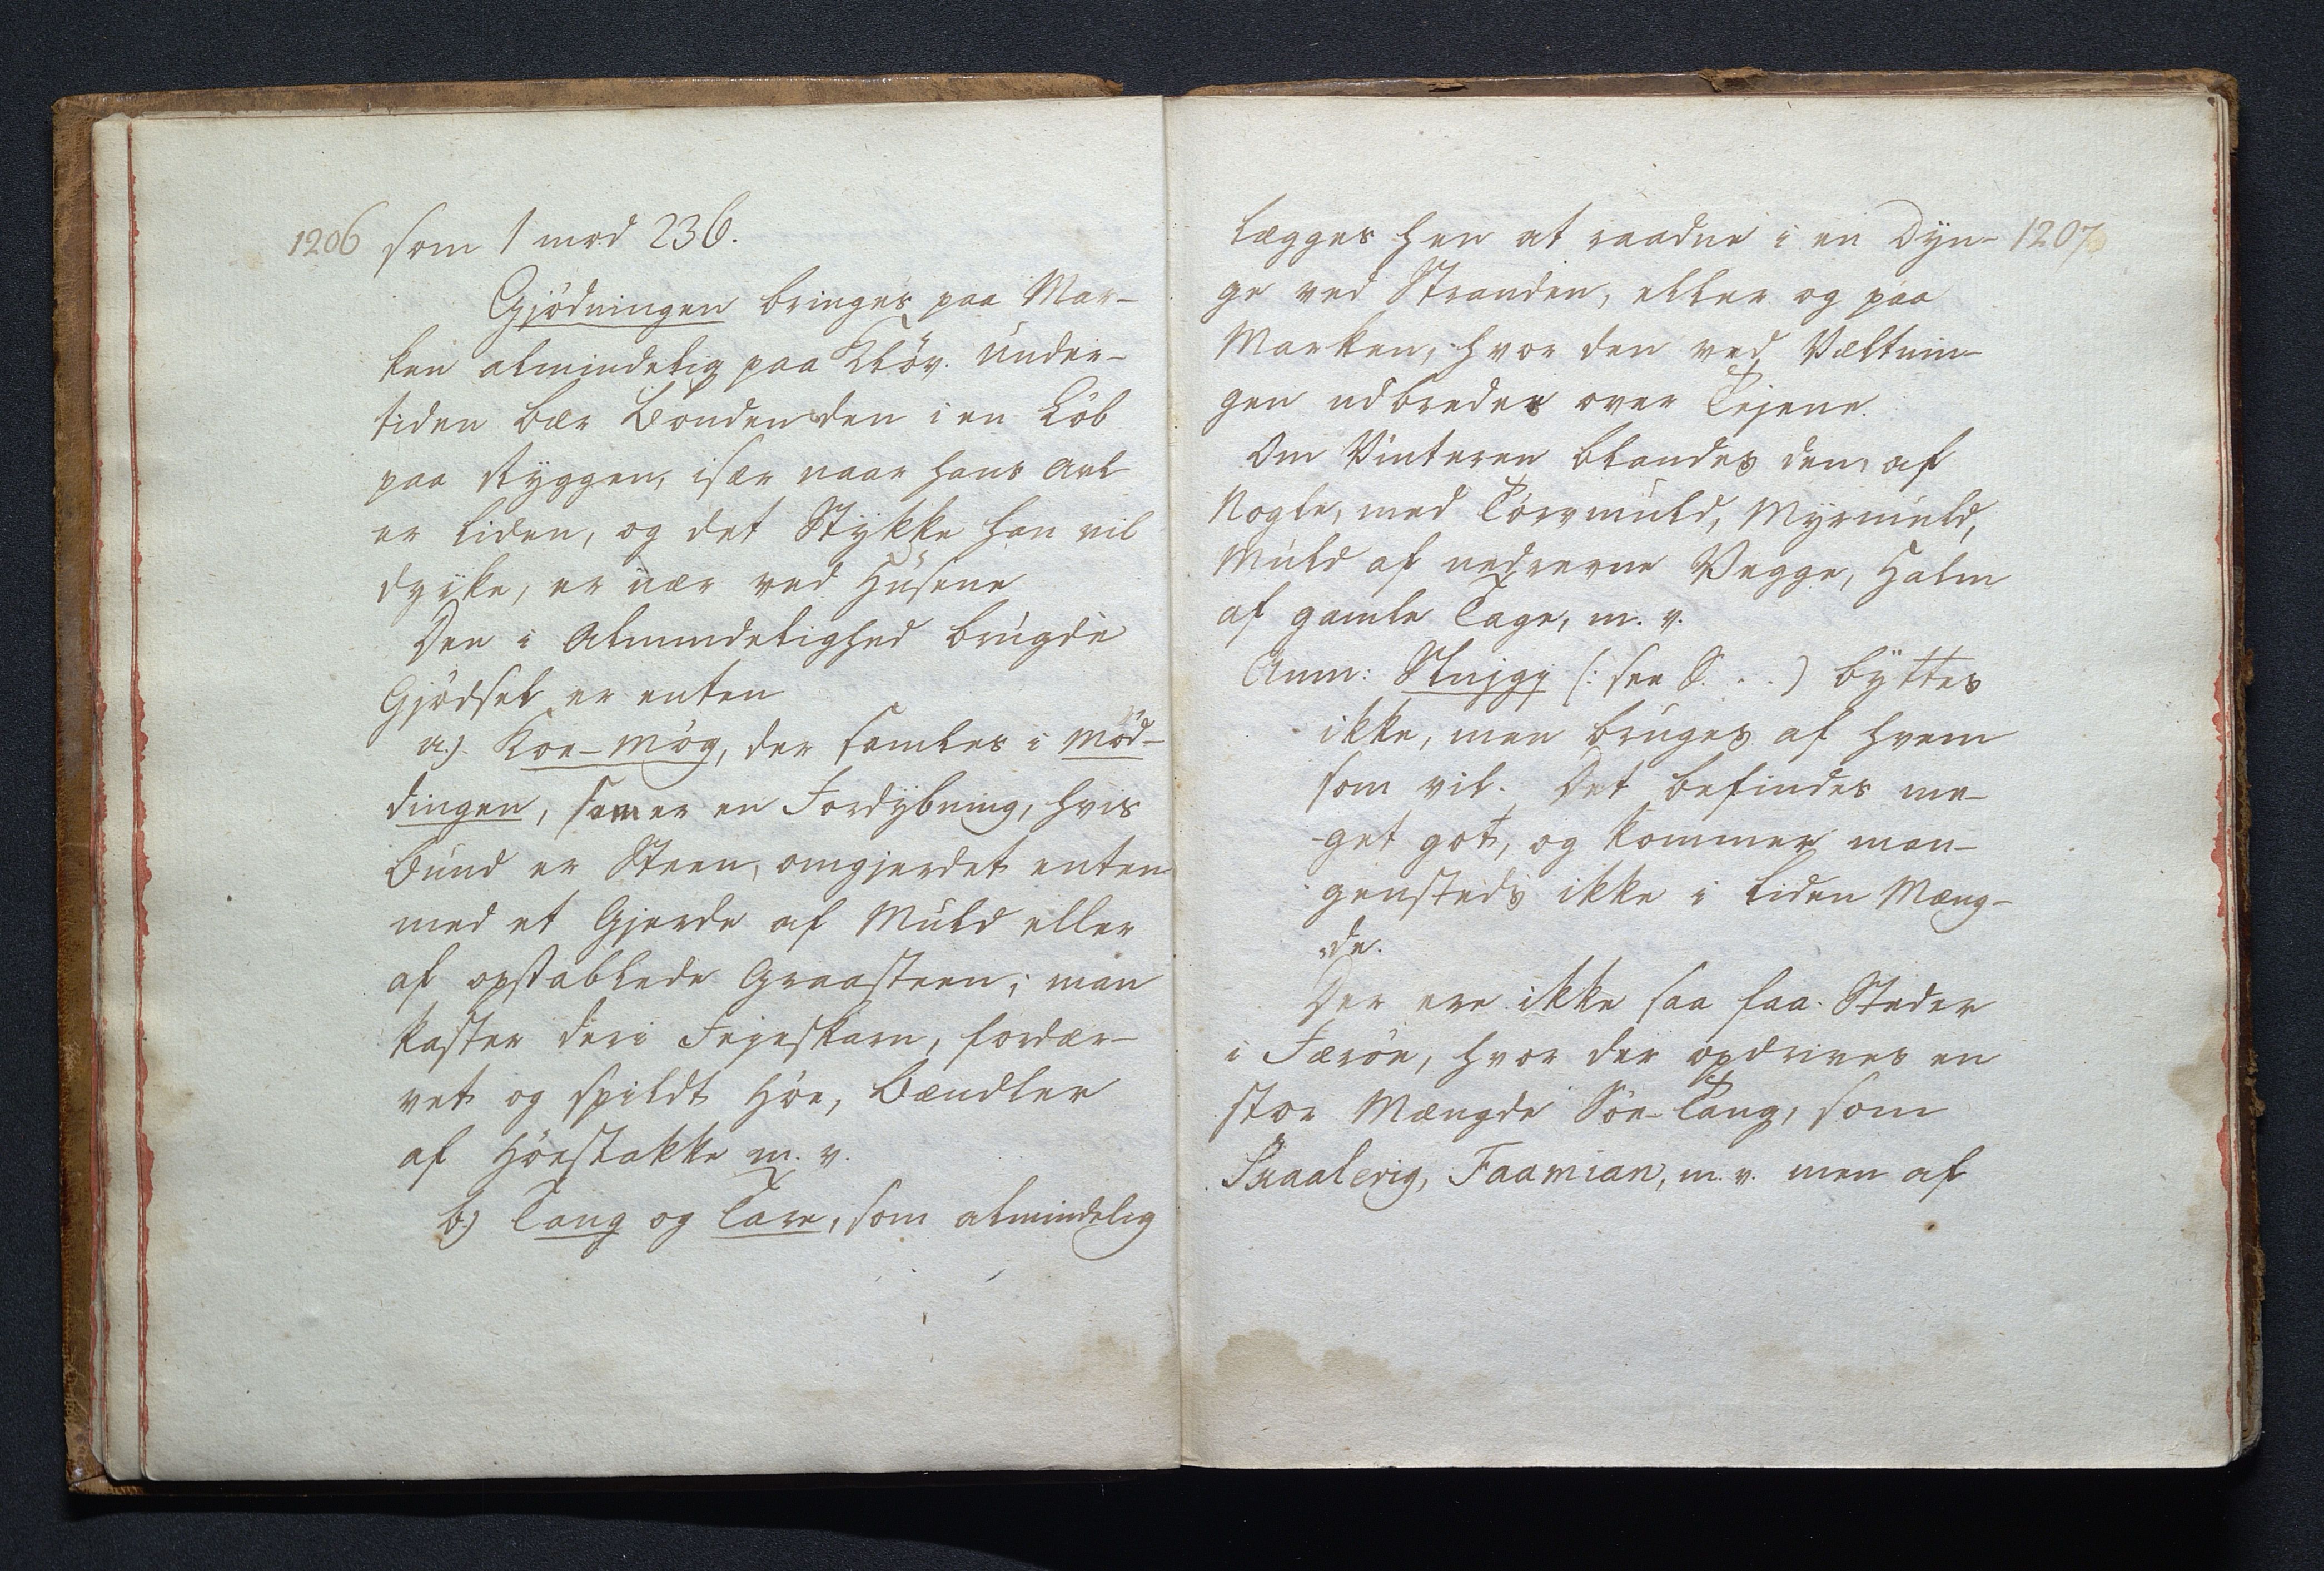 1206 som 1 mod 236.
Gjödningen bringes paa Mar-
ken almindelig paa Klöv. Under-
tiden bær Bonden den i en Löb
paa Ryggen, især naar hans Avl
er liden, og det Stykke han vil
dyrke, er nær ved Husene
Den i Almindelighed brugde
Gjödsel er enten
a.) Koe-Mög, der samles i Möd-
dingen, som er en Fordybning, hvis
Bund er Steen, omgjerdet enten
med et Gjerde af Muld eller
af opstablede Graasteen; man
kaster deri Fejeskarn, fordær-
vet og spildt Höe, Bændler
af Höestakke m. v.
b.) Tang og Tare, som almindelig
lægges hen at raadne i en Dyn- 1207
ge ved Stranden, eller og paa
Marken, hvor den ved Væltnin-
gen udbredes over Tejene.
Om Vinteren blandes den, af
Nogle, med Törvmuld, Myrmuld,
Muld af nedrevne Vegge, Halm
af gamle Tage, m. v.
Anm: (: see S. . .) byttes
ikke, men bruges af hvem
som vil. Det befindes me-
get got, og kommer man-
gensteds ikke i liden Mæng-
de.
Der ere ikke saa faa Steder
i Færöe, hvor der opdrives en
stor Mængde Söe-Tang, som
Skaalevig, Faamian, m. v. men af